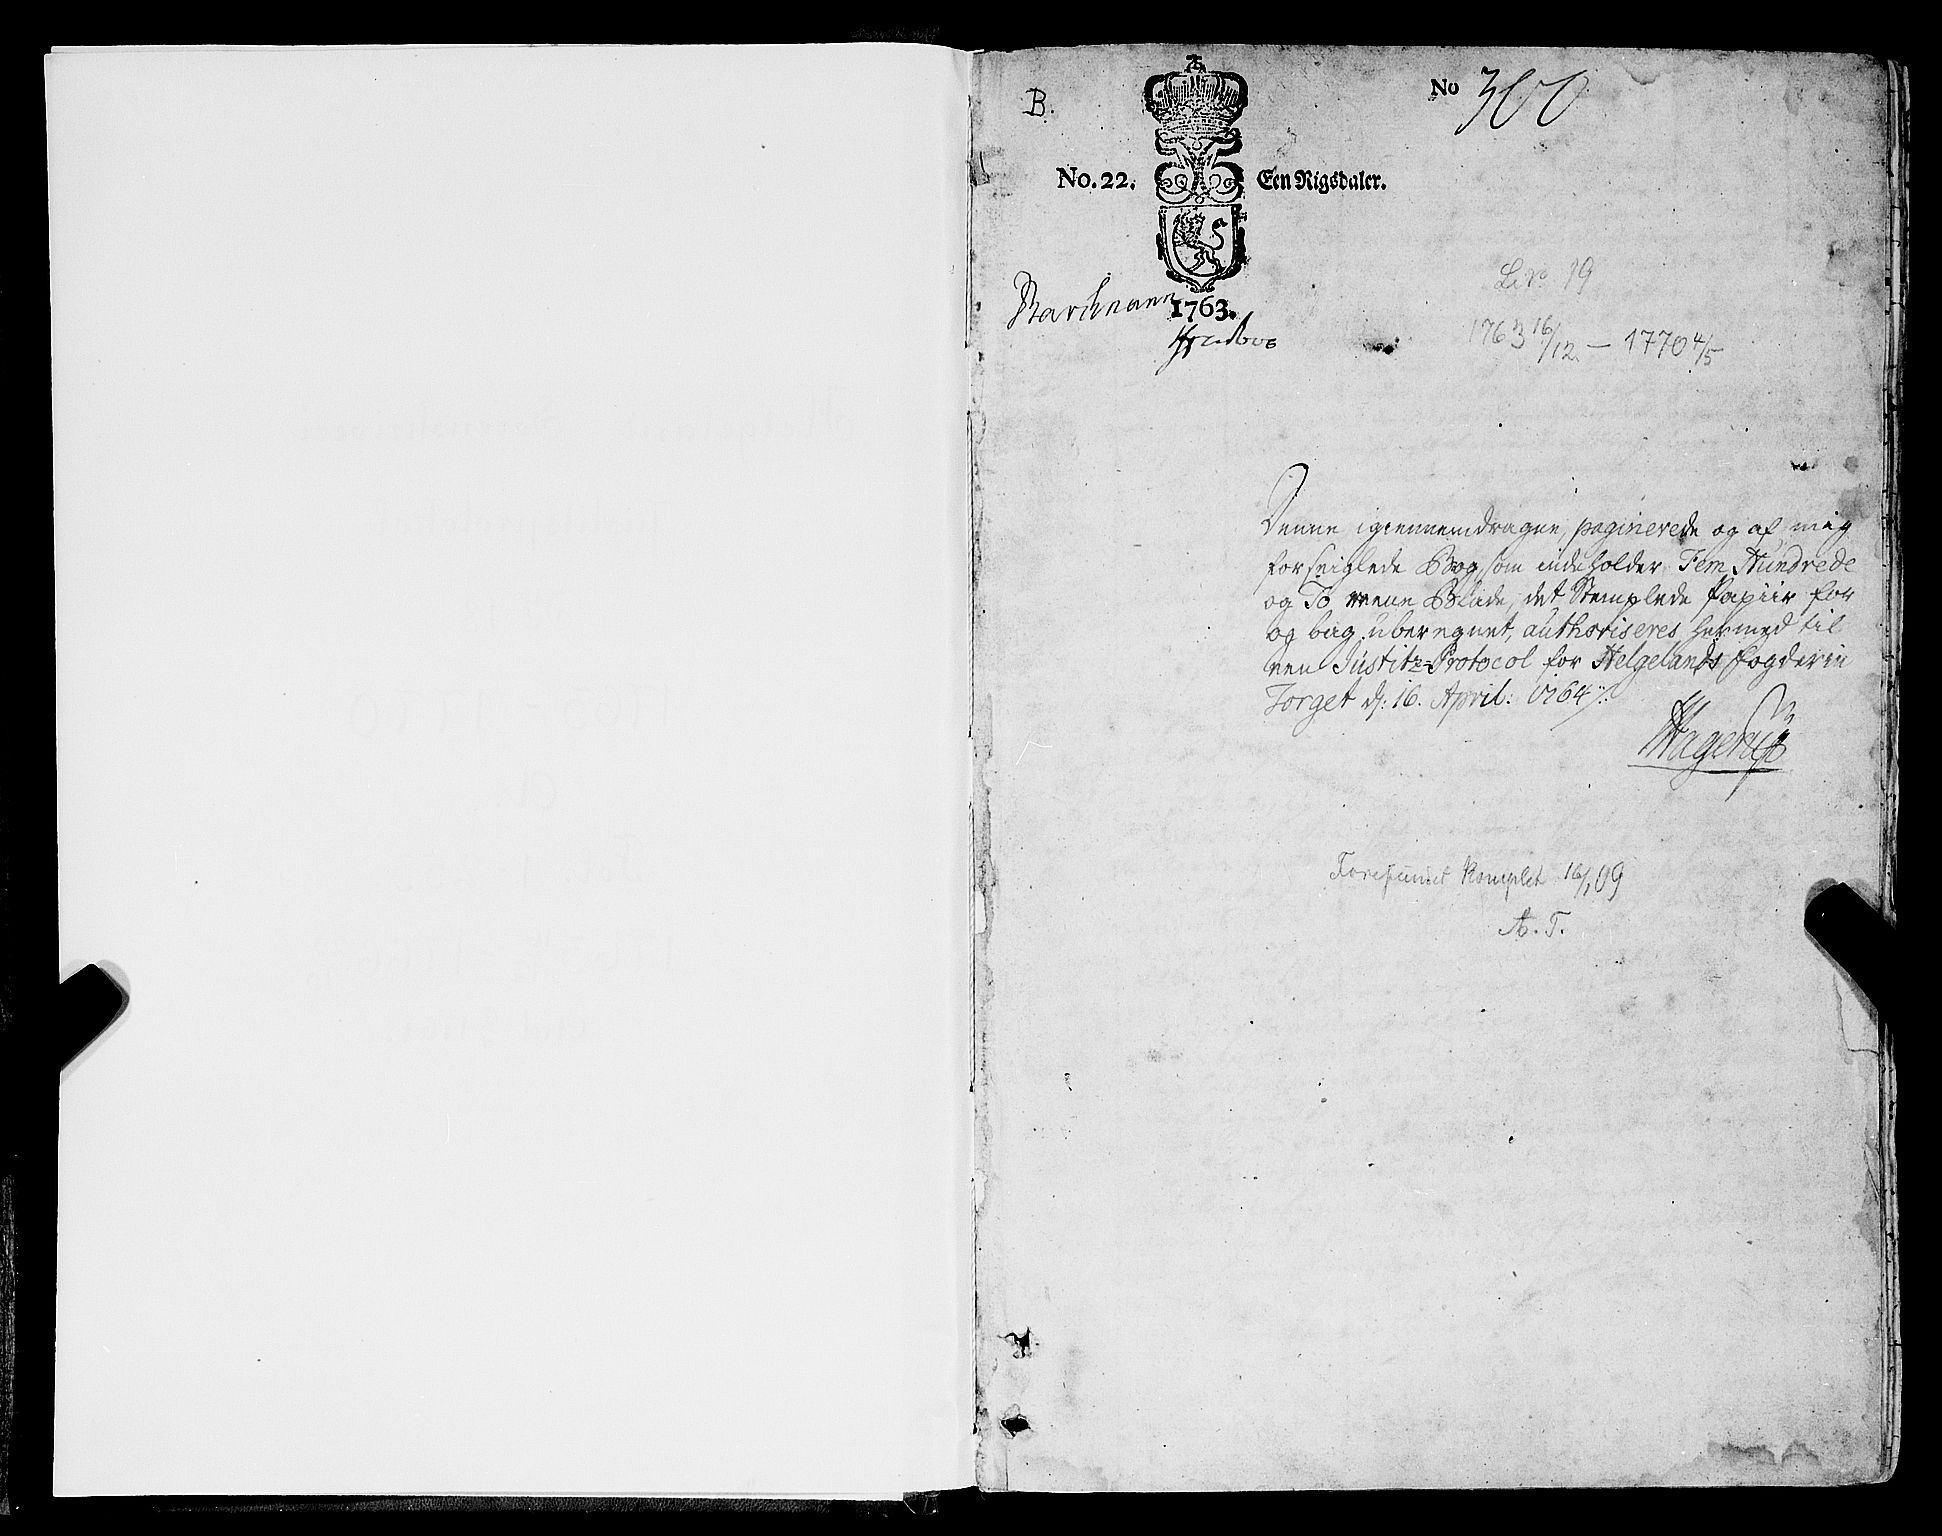 B.
No 300
No. 22. Een Rigsdaler.
1763.
Lit. 19
1763 16/12 — 1770 4/5
Denne igiennemdragne, paginerede og af mig
forseiglede Bog, som indeholder Fem Hundrede
og To reene Blade, det Stemplede Papiir for
og bag uberegnet, authoriseres hermed til
een Justitz-Protocol for Helgelands fogderie
Torget d: 16. April: 1764
Hagerup
Forefunnet komplet 16/1 09
A. T.